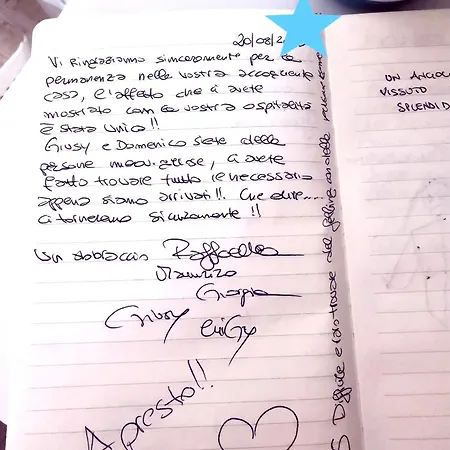 20/08/2
Vi Ringraziamo sinceramente per la
permanenza nella vostra accogliente
casa, l'affetto che ci avete
mostrato con la vostra ospitalità
è stata Unica!!
Giusy e Domenico siete delle
persone meravigliose, ci avete
fatto trovare tutto il necessario
appena siamo arrivati!!. Che dire....
ci torneremo sicuramente!!
Un abbraccio Raffaella
Maurizio
Giorgia
Giusy Luigy
A presto!!
UN ANGOLO
VISSUTO
SPLENDID